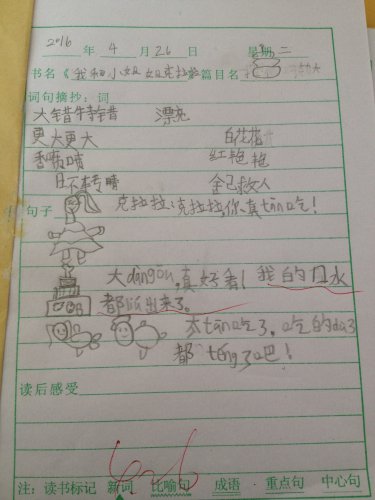 2016 年 4 月 26 日 星期 二
书名《我和小姐姐克拉拉》篇目名
词句摘抄：词
大错特错 漂亮
更大更大 白花花
香喷喷 红艳艳
目不专睛 舍己救人
句子 克拉拉，克拉拉，你真tān吃！
大dàngāo，真好看！我的口水
都 出来了。
太tān吃了，吃的dǔ子
都 téng了吧！
读后感受
注：读书标记 新词 比喻句 成语 重点句 中心句